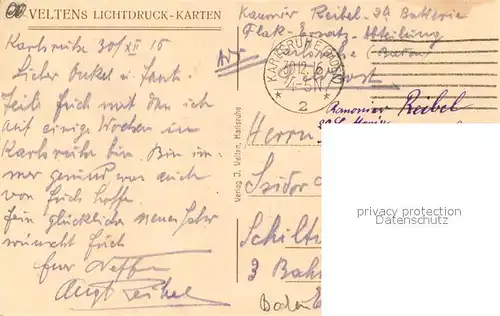 VELTENS LICHTDRUCK-KARTEN
Karlsruhe 30/XII 16
Lieber Onkel u. Tante.
Teile Euch mit das ich
auf einige Wochen in
Karlsruhe bin. Bin im-
mer gesund was auch
von Euch hoffe.
Ein glückliches neues Jahr
wünscht Euch
Euer Neffe
August Reibel
Kanonier Reibel
Flak-Ersatz-Abteilung
Karlsruhe (Baden)
KARLSRUHE (BADEN)
30.12.16
* 2 *
Post
Kanonier Reibel
Verlag J. Velten, Karlsruhe
Herrn
Isidor
Schilt
3 Bahn
Baden
privacy protection
Datenschutz